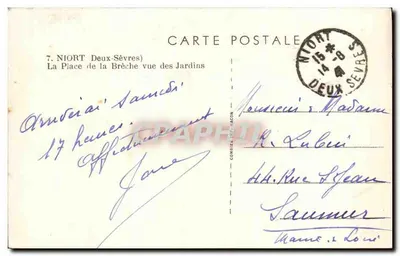 CARTE POSTALE
7. NIORT Deux-Sèvres)
La Place de la Brèche vue des Jardins
NIORT
15 * 
14 -8
41
DEUX SEVRES
Arriverai samedi
17 heures.
Affectueusement
Monsieur & Madame
R. Lubin
44 Rue St Jean
Saumur
Maine & Loire